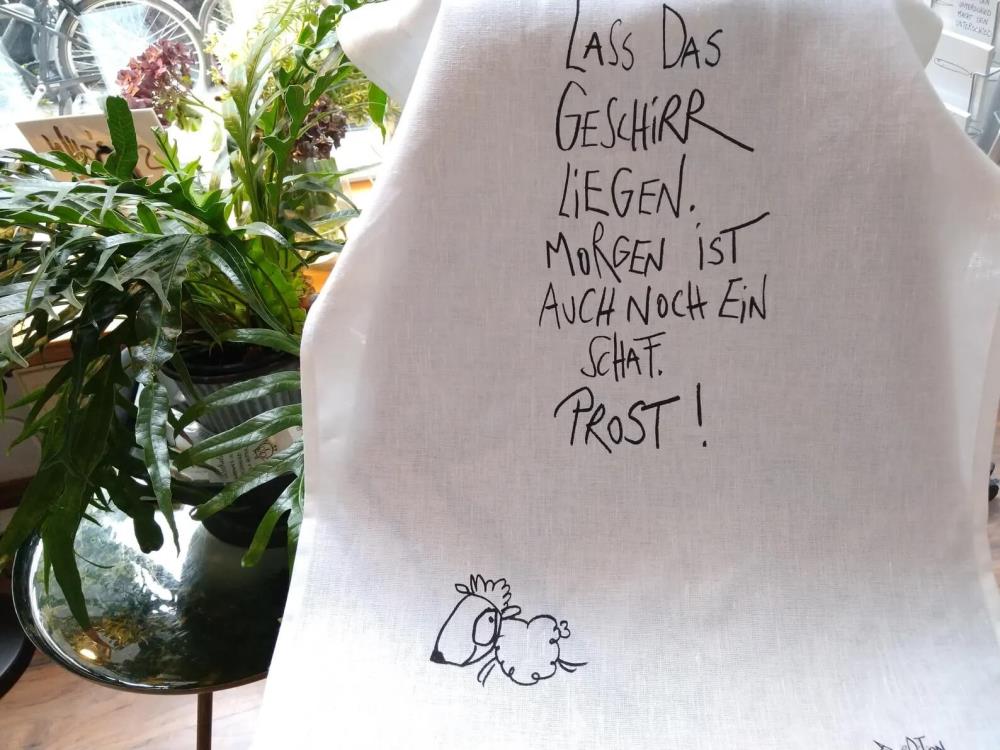 LASS DAS
GESCHIRR
LIEGEN.
MORGEN IST
AUCH NOCH EIN
SCHAF.
PROST!